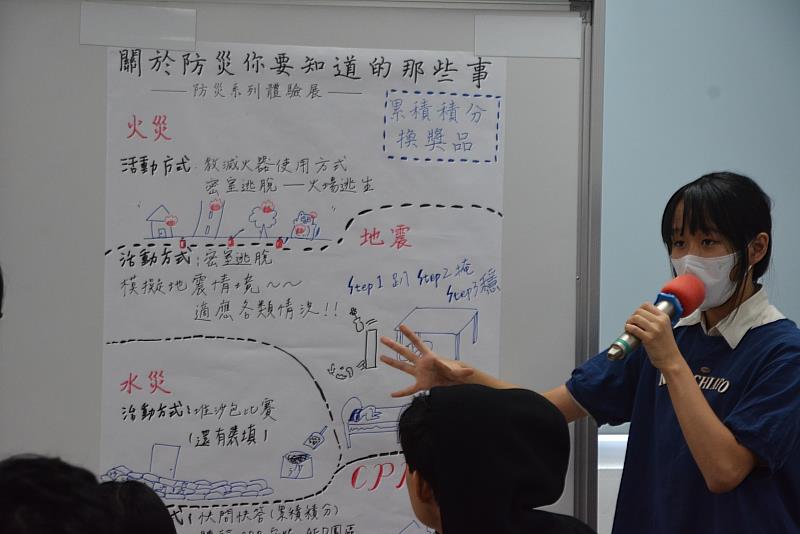 關於防災你要知道的那些事
——防災系列體驗展——
累積積分
換獎品
火災
活動方式:教滅火器使用方式
密室逃脫——火場逃生
地震
活動方式:密室逃脫
模擬地震情境~~
適應各類情況!!
Step1 趴 Step2 掩
Step3 穩
水災
活動方式:堆沙包比賽
(還有裝填)
沙
CPR
式:快問快答(累積積分)